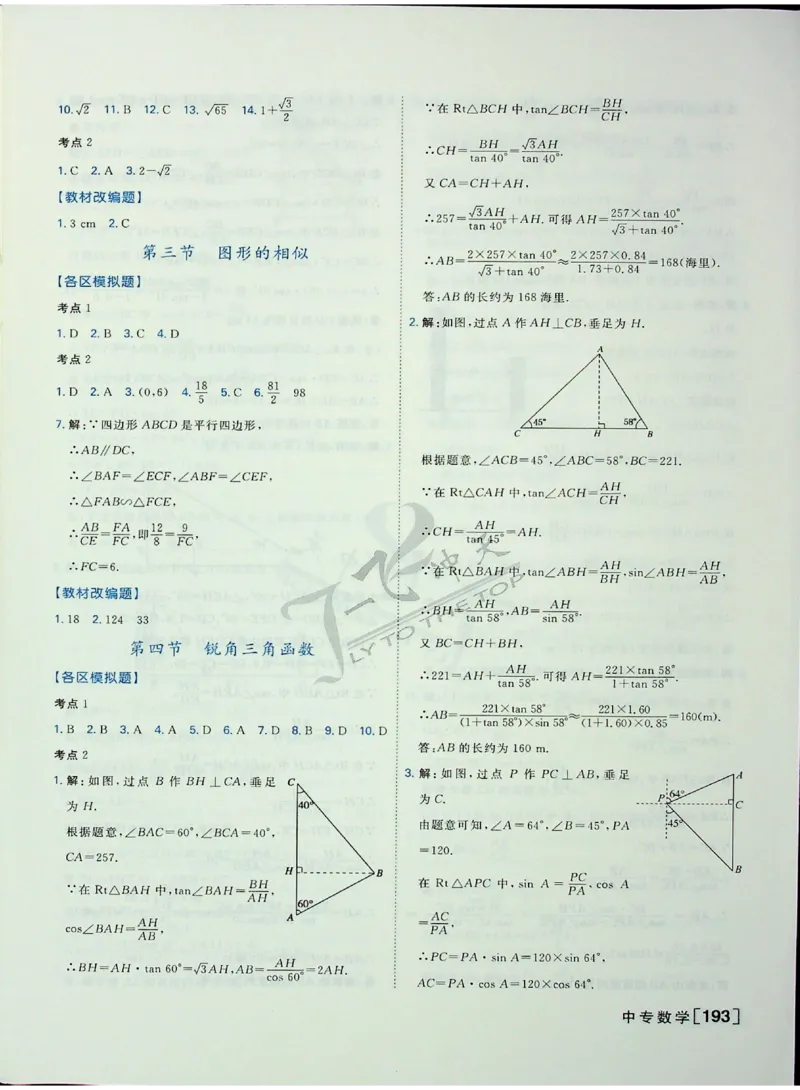 10.√2 11.B 12.C 13.√65 14.1+√3/2
考点2
1.C 2.A 3.2-√2
【教材改编题】
1.3 cm 2.C
第三节 图形的相似
【各区模拟题】
考点1
1.D 2.B 3.C 4.D
考点2
1.D 2.A 3.(0,6) 4.18/5 5.C 6.81/2 98
7.解:∵四边形ABCD是平行四边形,
∴AB∥DC,
∴∠BAF=∠ECF,∠ABF=∠CEF,
∴△FAB∽△FCE,
∴AB/CE=FA/FC,即12/8=9/FC,
∴FC=6.
【教材改编题】
1.18 2.124 33
第四节 锐角三角函数
【各区模拟题】
考点1
1.B 2.B 3.A 4.A 5.D 6.A 7.D 8.B 9.D 10.D
考点2
1.解:如图,过点B作BH⊥CA,垂足
为H.
根据题意,∠BAC=60°,∠BCA=40°,
CA=257.
∵在Rt△BAH中,tan∠BAH=BH/AH,
cos∠BAH=AH/AB,
∴BH=AH·tan 60°=√3AH,AB=AH/cos 60°=2AH.
C
40°
H
B
60°
A
∵在Rt△BCH中,tan∠BCH=BH/CH,
∴CH=BH/tan 40°=√3AH/tan 40°.
又CA=CH+AH,
∴257=√3AH/tan 40°+AH.可得AH=257×tan 40°/√3+tan 40°.
∴AB=2×257×tan 40°/√3+tan 40°≈2×257×0.84/1.73+0.84=168(海里).
答:AB的长约为168海里.
2.解:如图,过点A作AH⊥CB,垂足为H.
A
45° 58°
C H B
根据题意,∠ACB=45°,∠ABC=58°,BC=221.
∵在Rt△CAH中,tan∠ACH=AH/CH,
∴CH=AH/tan 45°=AH.
∵在Rt△BAH中,tan∠ABH=AH/BH,sin∠ABH=AH/AB,
∴BH=AH/tan 58°,AB=AH/sin 58°.
又BC=CH+BH,
∴221=AH+AH/tan 58°.可得AH=221×tan 58°/1+tan 58°.
∴AB=221×tan 58°/(1+tan 58°)×sin 58°≈221×1.60/(1+1.60)×0.85=160(m).
答:AB的长约为160 m.
3.解:如图,过点P作PC⊥AB,垂足
为C.
由题意可知,∠A=64°,∠B=45°,PA
=120.
在Rt△APC中,sin A=PC/PA,cos A
=AC/PA,
∴PC=PA·sin A=120×sin 64°,
AC=PA·cos A=120×cos 64°.
A
64°
P
C
45°
B
一飞冲天
FLY TO THE TOP
中专数学[193]